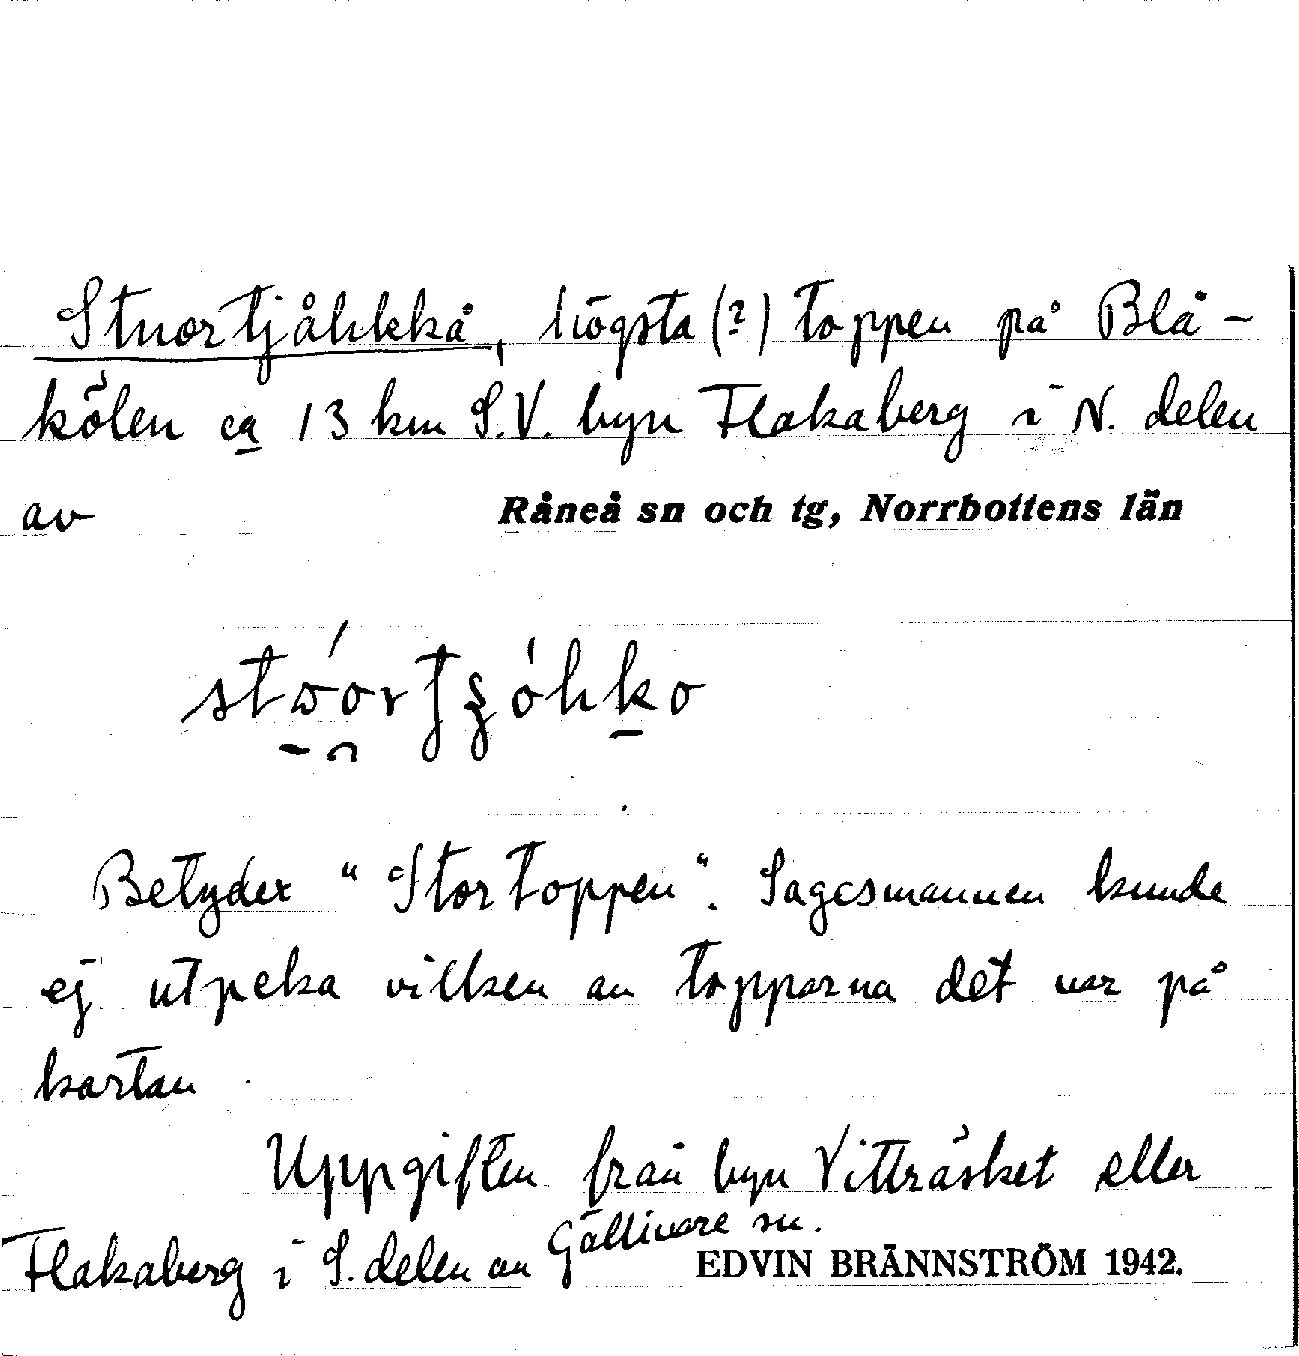 Stuortjåhkkå, högsta (?) toppen på Blå-
kölen ca 13 km S.V. byn Flakaberg i N. delen
av Råneå sn och tg, Norrbottens län
Betyder "Stortoppen". Sagesmannen kunde
ej utpeka vilken av topparna det var på
kartan.
Uppgiften från byn Vitträsket eller
Flakaberg i S. delen av Gällivare sn.
EDVIN BRÄNNSTRÖM 1942.